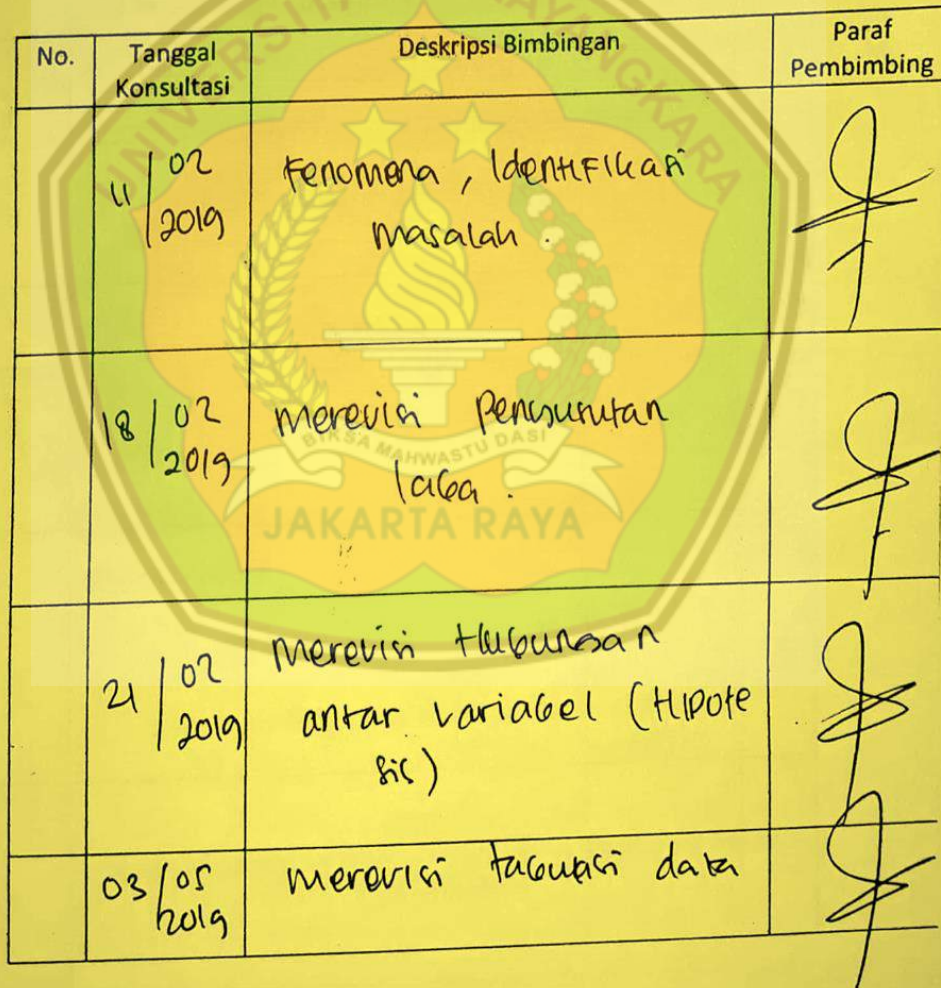 No.
Tanggal
Konsultasi
Deskripsi Bimbingan
Paraf
Pembimbing
11/02
2019
Fenomena, Identifikasi
masalah.
18/02
2019
merevisi Pengurutan
laba.
21/02
2019
Merevisi Hubungan
antar variabel (Hipote
sis)
03/05
2019
merevisi tabulasi data
BHAKSA MAHWASTU DASI
JAKARTA RAYA